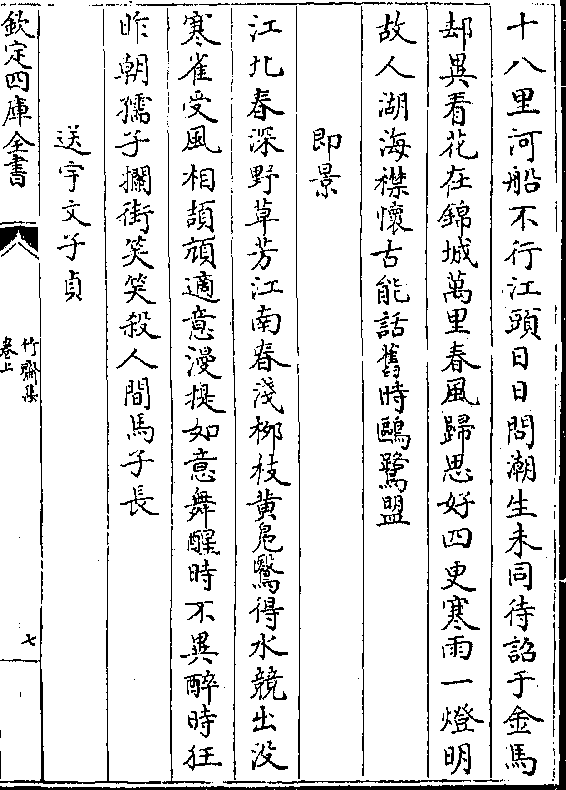 十八里河船不行江頭日日問潮生未同待詔于金馬
却異看花在錦城萬里春風歸思好四更寒雨一燈明
故人湖海襟懷古能話舊時鷗鷺盟
即景
江北春深野草芳江南春淺柳枝黄鳬鷖得水競出没
寒雀受風相頡頏適意漫提如意舞醒時不異醉時狂
昨朝孺子攔街笑笑殺人間馬子長
送宇文子貞
欽定四庫全書
竹齋集
卷上
七